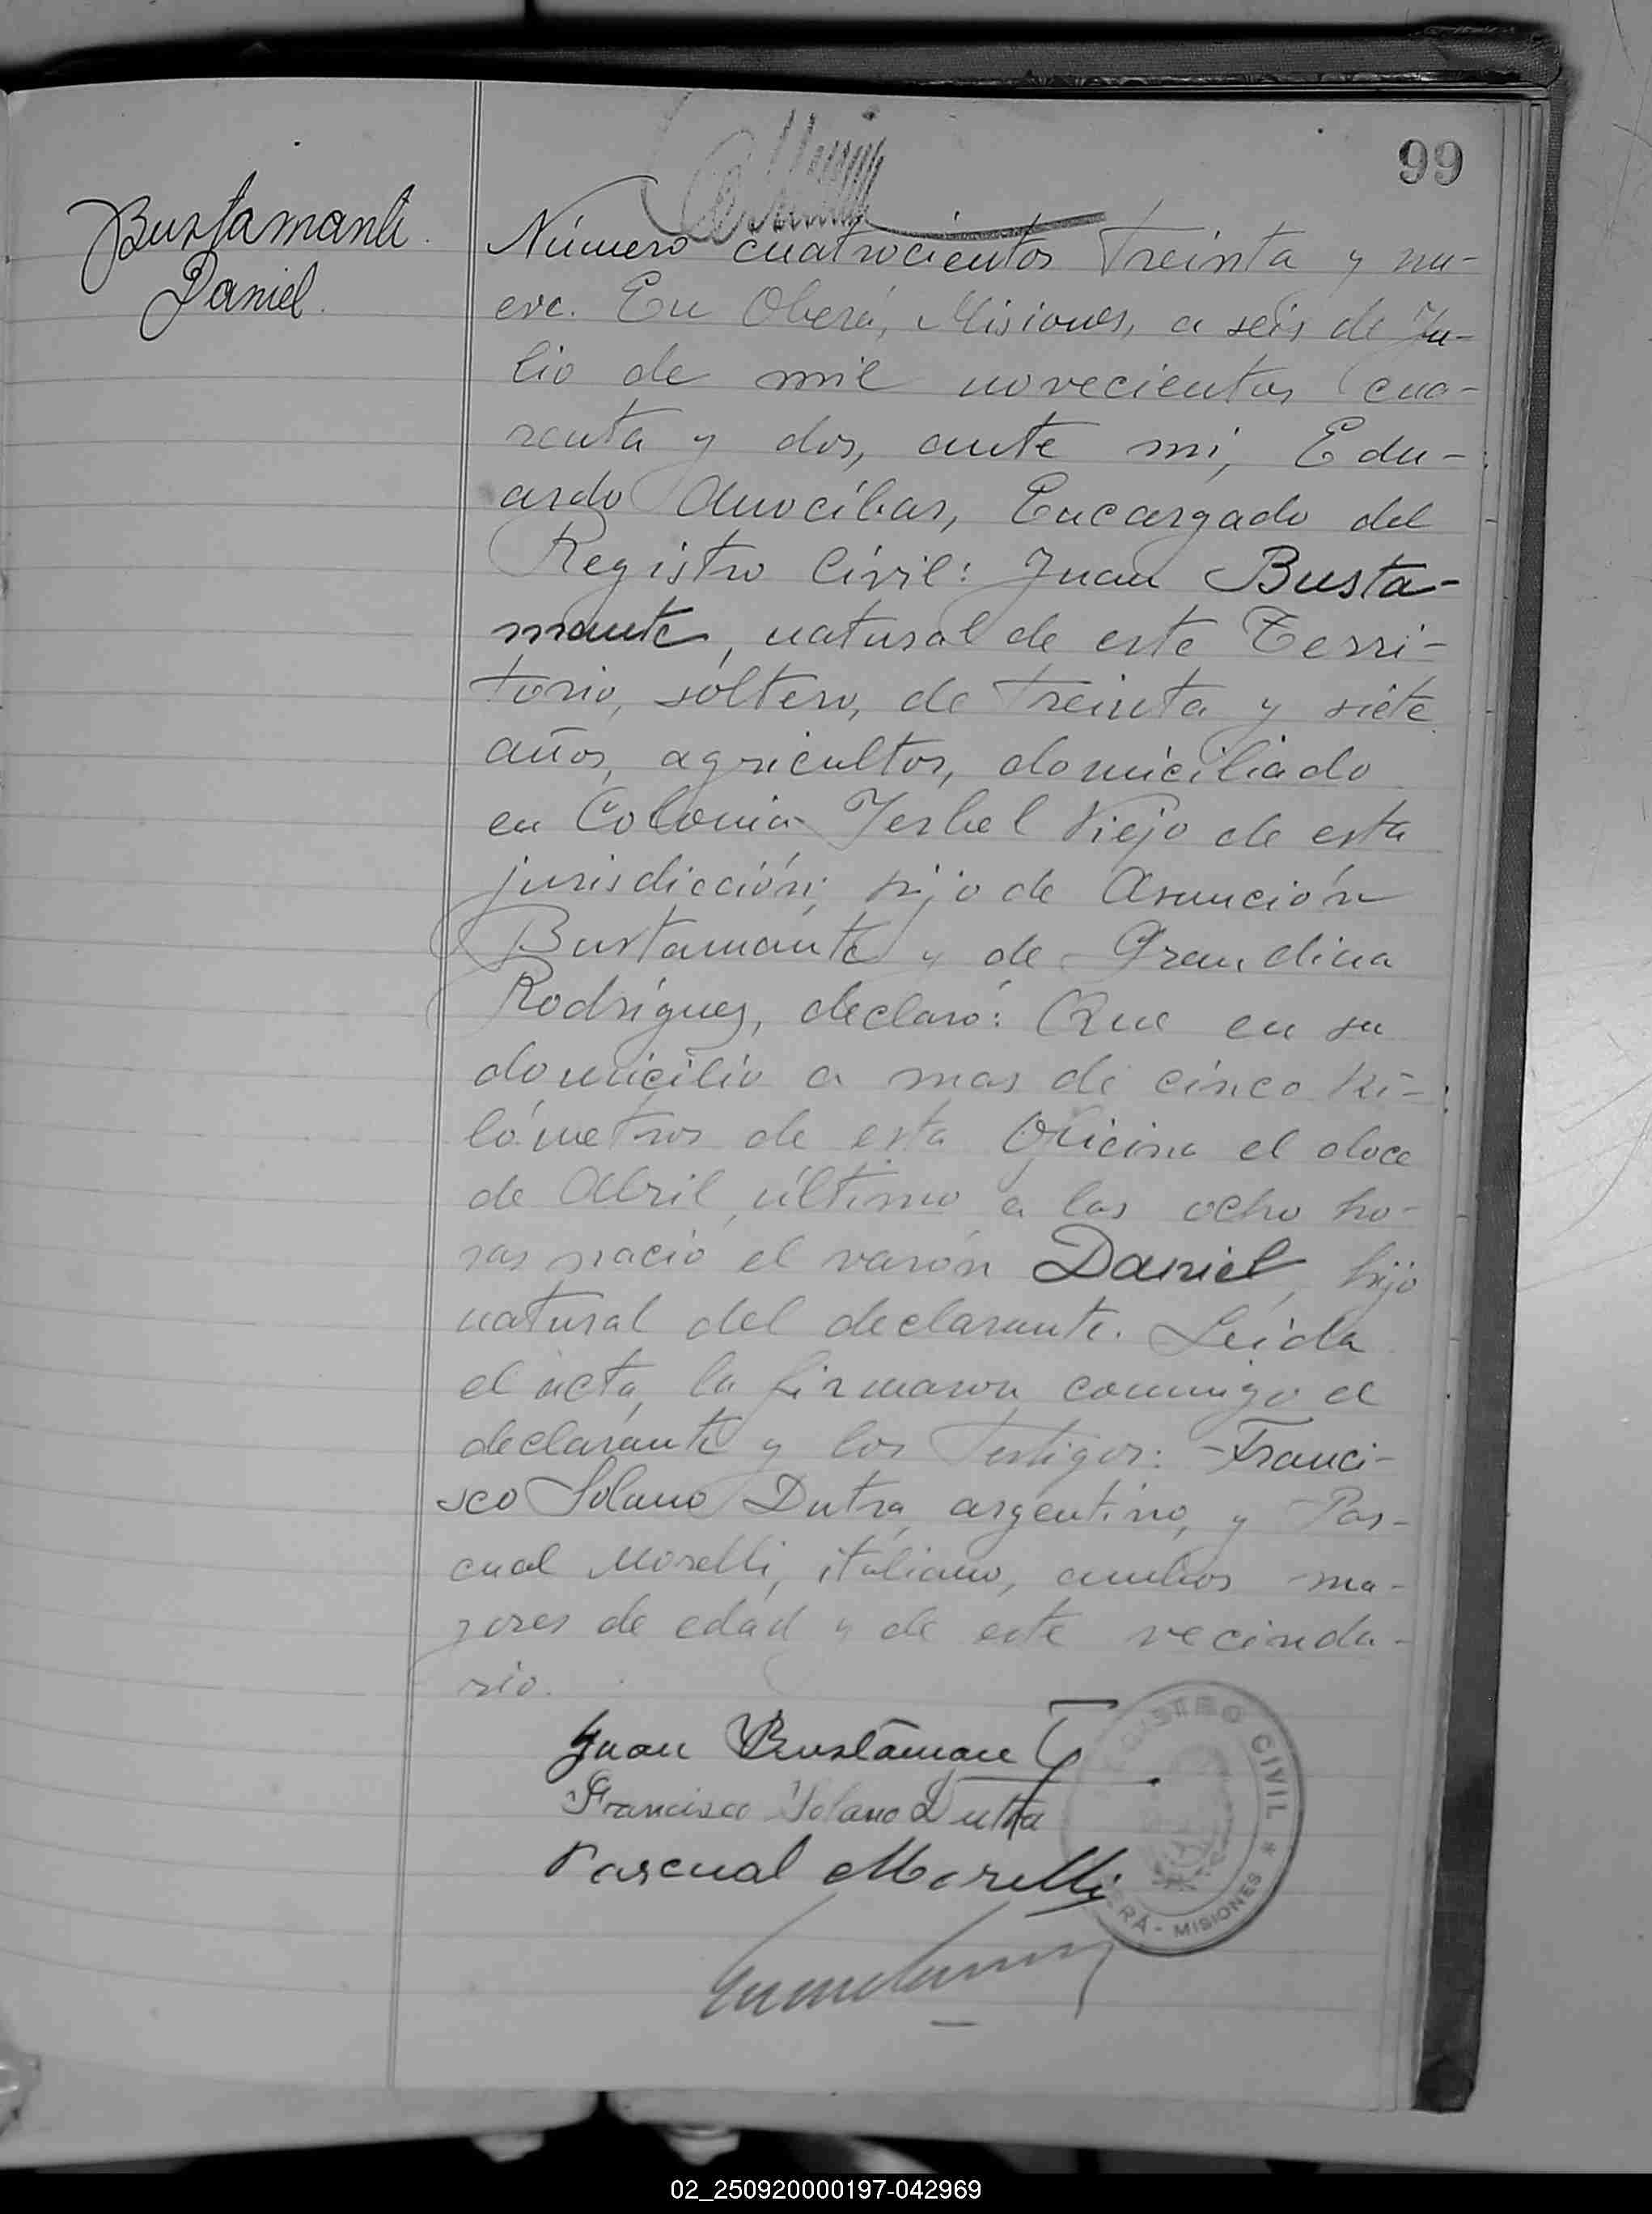 99
Bustamante
Daniel.
Número cuatrocientos treinta y nu-
eve. En Oberá, Misiones, a seis de Ju-
lio de mil novecientos cua-
renta y dos, ante mi, Edu-
ardo Anocíbar, Encargado del
Registro Civil: Juan Busta-
mante, natural de este Terri-
torio, soltero, de treinta y siete
años, agricultor, domiciliado
en Colonia Yerbal Viejo de esta
jurisdicción; hijo de Asunción
Bustamante y de
Rodríguez, declaró: Que en su
domicilio a mas de cinco ki-
lómetros de esta Oficina el doce
de Abril último a las ocho ho-
ras nació el varón Daniel, hijo
natural del declarante. Leída
el acta, la firmaron conmigo el
declarante y los testigos: Franci-
sco Solano Dutra, argentino, y Pas-
cual Morelli, italiano, ambos ma-
yores de edad y de este vecinda-
rio.
Juan Bustamante
Francisco Solano Dutra
Pascual Morelli
REGISTRO CIVIL * RÁ - MISIONES
02_250920000197-042969